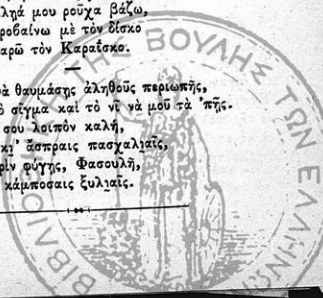 ληά μου ροῦχα βάζω,
ροβαίνω μὲ τὸν δίσκο
αρῶ τὸν Καραΐσκο.
ὰ θαυμάσῃς ἀληθοῦς περιωπῆς,
ὸ σίγμα καὶ τὸ νῖ νὰ μοῦ τὰ 'πῇς.
σου λοιπὸν καλή,
κι' ἄσπραις πασχαλιαῖς,
ρὶν φύγῃς, Φασουλῆ,
κάμποσαις ξυλιαῖς.
ΒΙΒΛΙΟ ΤΗΣ ΒΟΥΛΗΣ ΤΩΝ ΕΛΛΗΝΩ